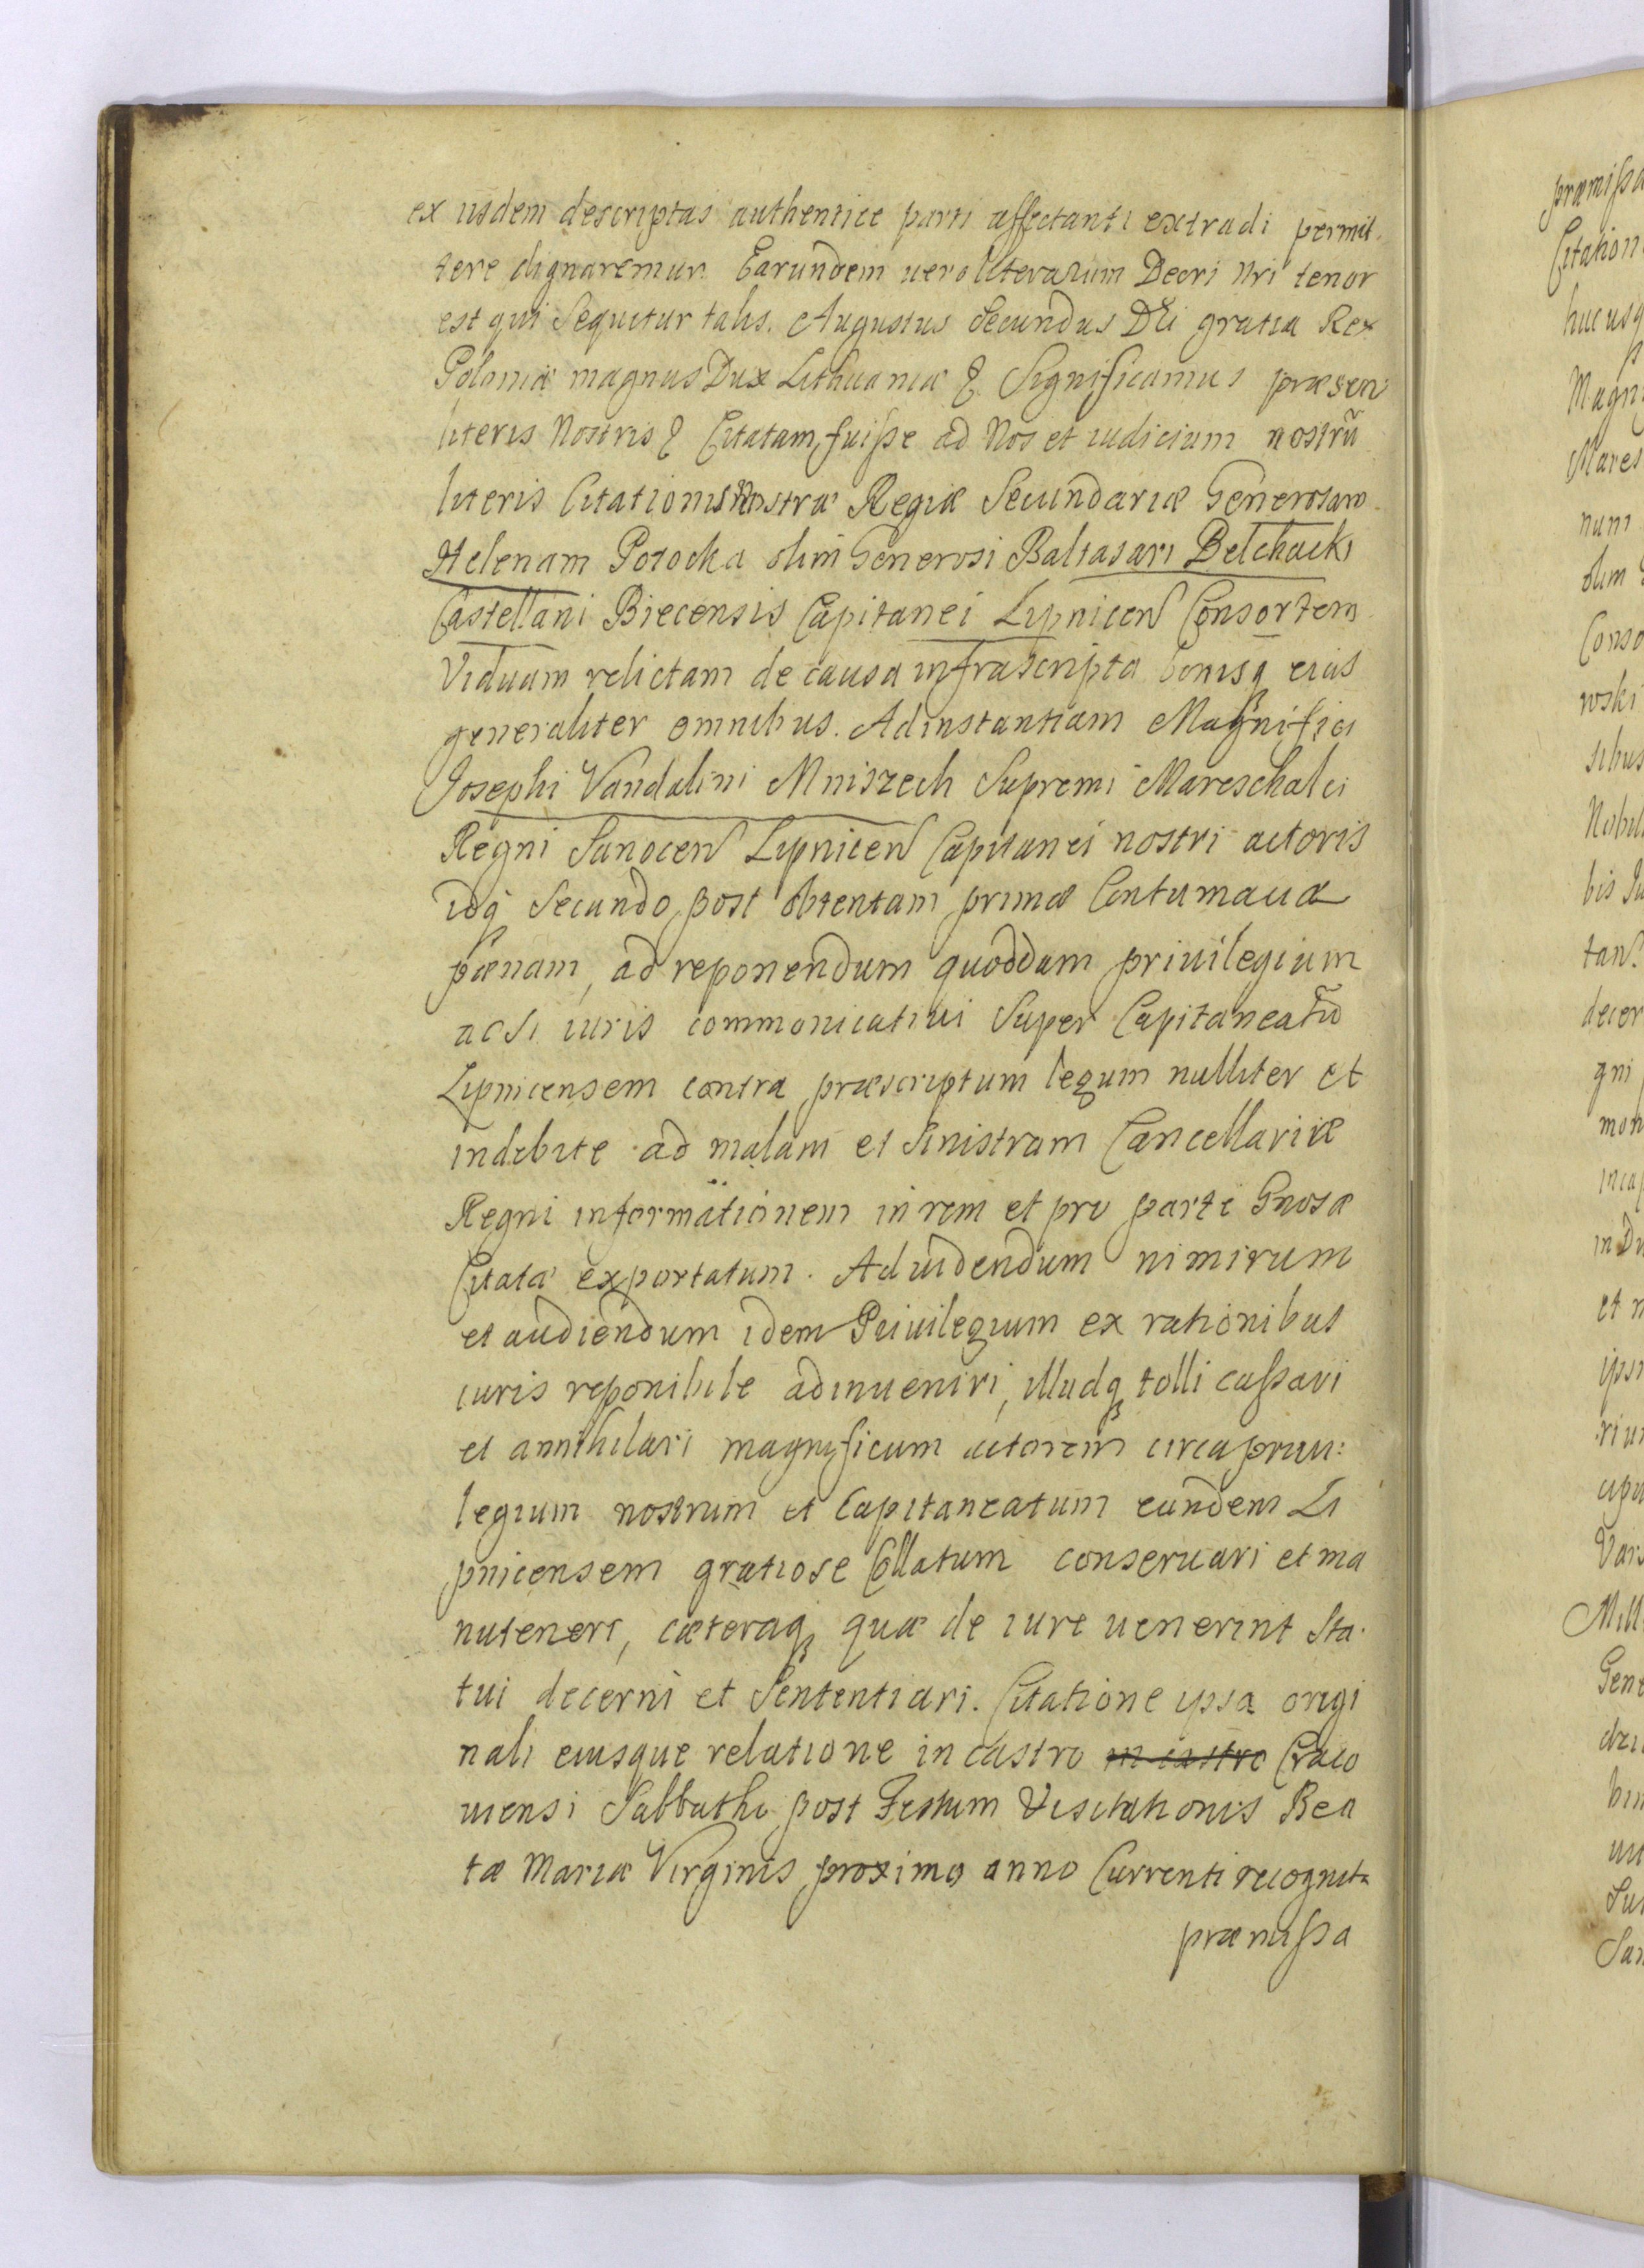 ex iisdem descriptas authentice parti affectanti extradi permit.
tere dignaremur. Earundem uero literarum Decri Nri tenor
est qui Sequitur talis. Augustus Secundus Dei gratia Rex
Poloniæ magnus Dux Lithuaniæ & Significamus præsen
literis Nostris & Citatam fuiſse ad Nos et iudicium nostrũ
literis Citationis Nostræ Regiæ Secundariæ Generosam
Helenam Potocka olim Generosi Baltasari Belchacki
Castellani Biecensis Capitanei Lipnicen Consortem
Viduam relictam de causa infrascripta bonisq eius
generaliter omnibus. Ad instantiam Magnifici
Josephi Vandalini Mniszech Supremi Mareschalci
Regni Sanocen Lipnicen Capitanei nostri actoris
idq Secundo post obtentam primæ Contumaciæ
pænam, ad reponendum quoddam priuilegium
ac Si iuris commonicatiui Super Capitaneatũ
Lipnicensem contra præscriptum legum nulliter et
indebite ad malam et Sinistram Cancellariæ
Regni informationem in rem et pro parte Gnosæ
Citatæ exportatum. Ad uidendum nimirum
et audiendum idem Priuilegium ex rationibus
iuris reponibile adinueniri, illudq tolli caſsari
et annihilari magnificum actorem circa priui:
legium nostrum et Capitaneatum eundem Li
pnicensem gratiose Collatum conseruari et ma
nuteneri, cæteraq quæ de iure uenerint Sta.
tui decerni et Sententiari. Citatione ipsa origi
nali eiusque relatione in castro in castro Craco
uiensi Sabbatho post Festum Visitationis Bea
tæ Mariæ Virginis proximo anno Currenti recognita
præmiſsa
præmiſsa
Citation
huc usq
Magni
Mares
num
olim
Conso
roski
sibus
Nobil
bis Iu
tan
decer
gni
mon
incap
in Du
et n
ipsi
riu
Vars
Mill
Gene
bin
Sa